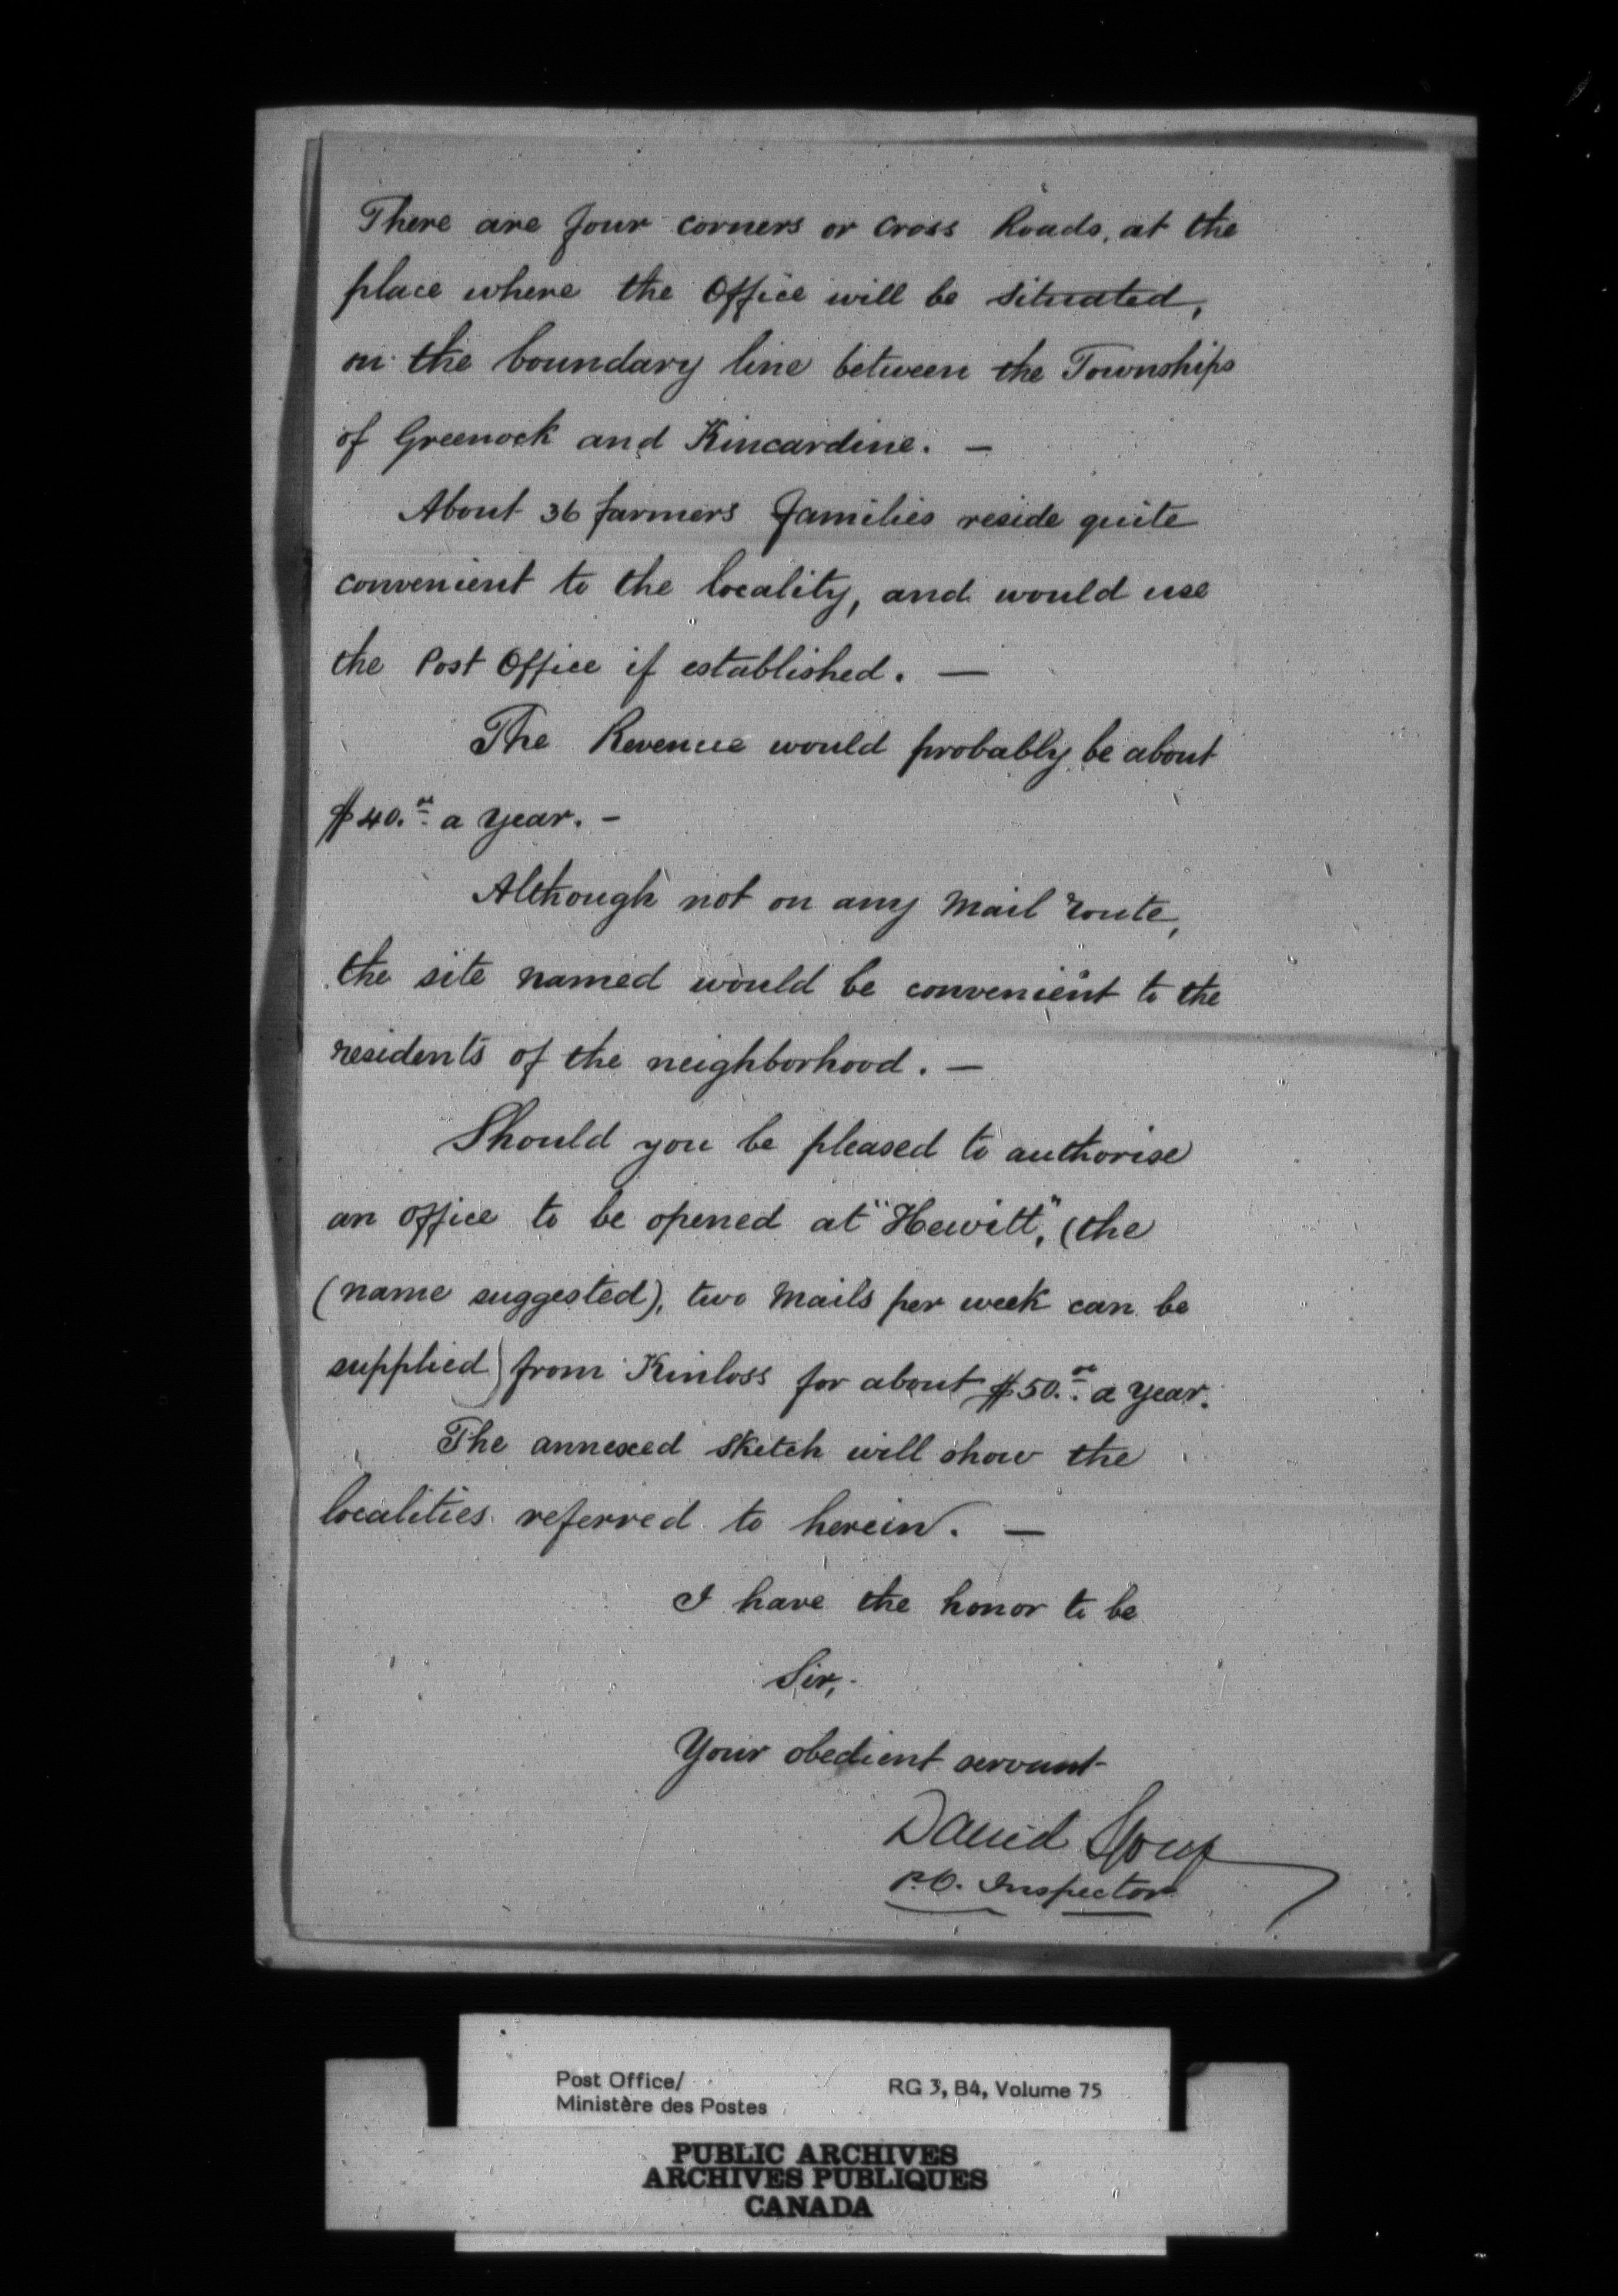 There are four corners or Cross Roads, at the
place where the Office will be situated,
on the boundary line between the Townships
of Greenock and Kincardine. —
About 36 farmers families reside quite
convenient to the locality, and would use
the Post Office if established. —
The Revenue would probably be about
$40.00 a year. –
Although not on any Mail route,
the site named would be convenient to the
residents of the neighborhood. —
Should you be pleased to authorise
an office to be opened at "Hewitt", (the
(name suggested), two Mails per week can be
supplied) from Kinloss for about $50.00 a year.
The annexed sketch will show the
localities referred to herein. —
I have the honor to be
Sir,
Your obedient servant
David
P.O. Inspector
Post Office/
Ministère des Postes
RG 3, B4, Volume 75
PUBLIC ARCHIVES
ARCHIVES PUBLIQUES
CANADA